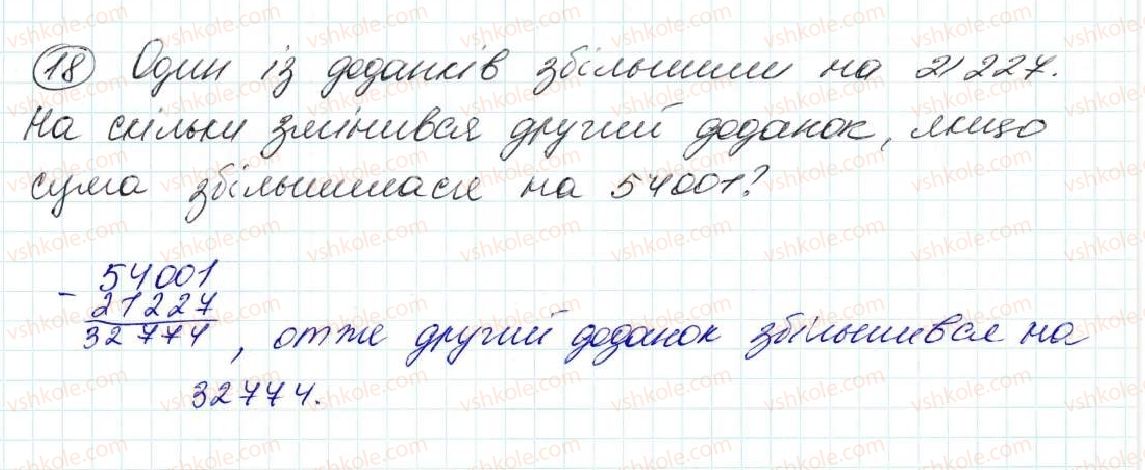 18 Один із доданків збільшили на 21227.
На скільки змінився другий доданок, якщо
сума збільшилася на 54001?
- 54001
21227
32774, отже другий доданок збільшився на
32774.